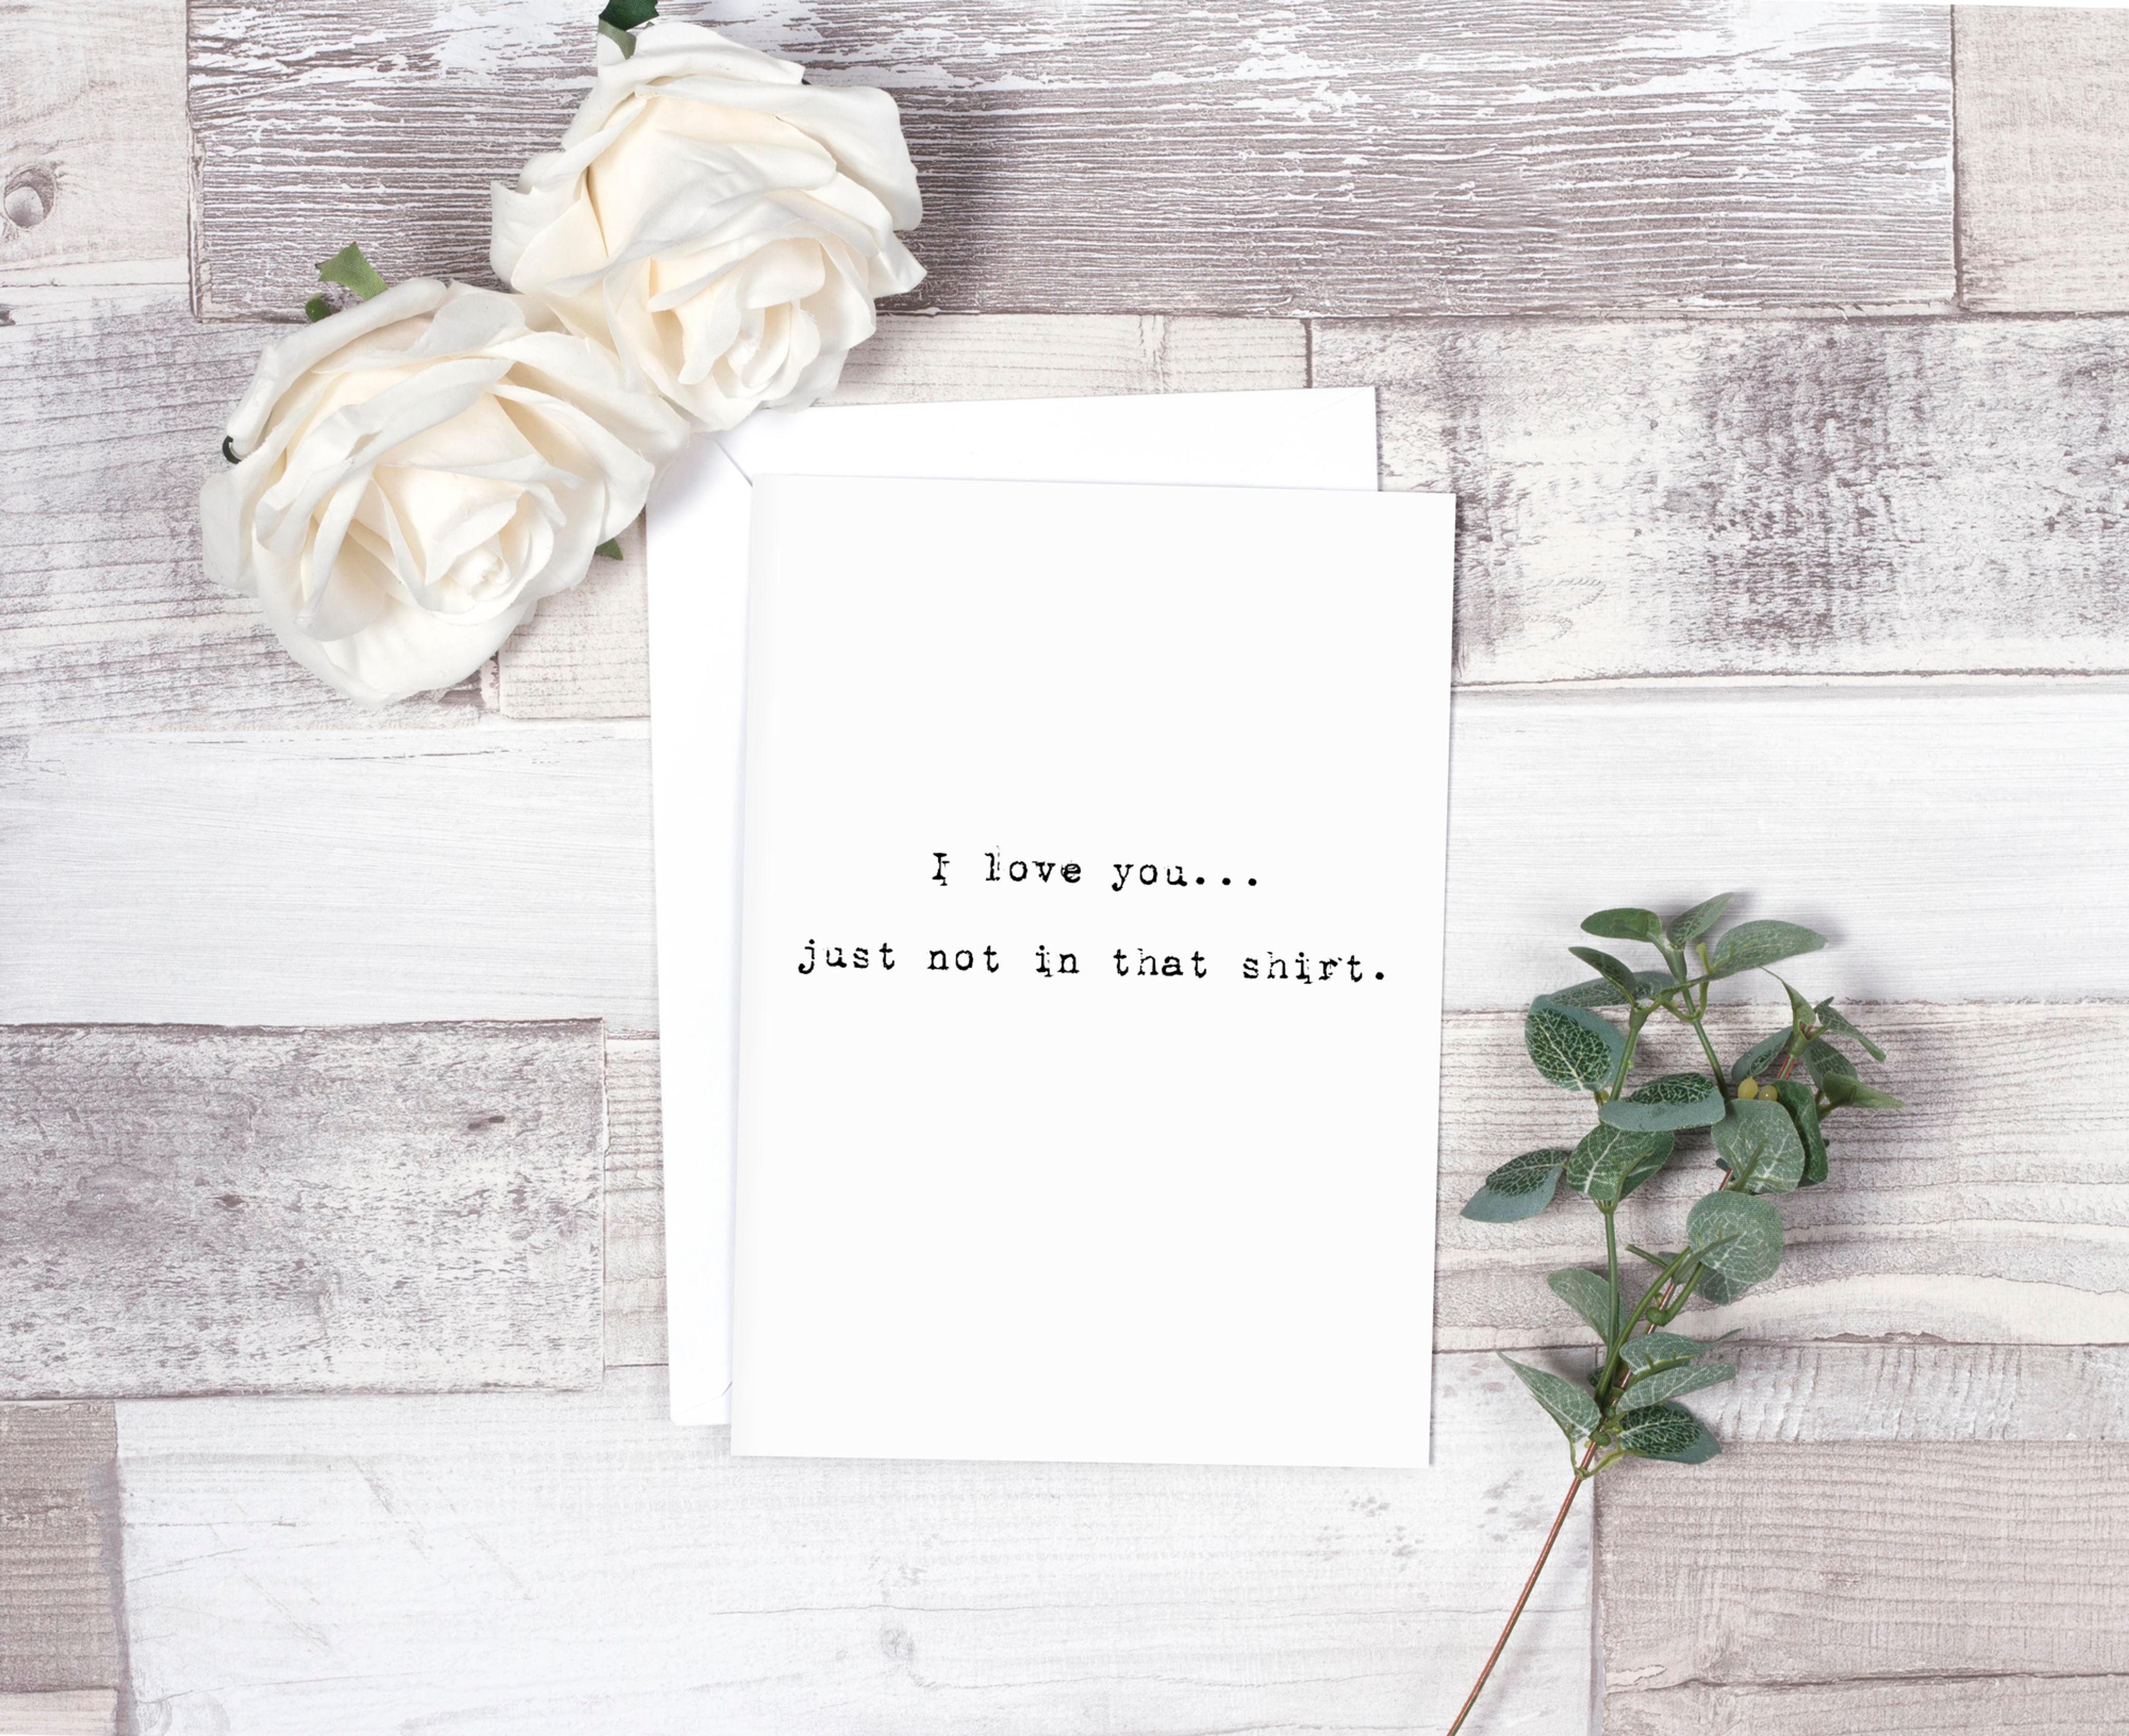 I love you...
just not in that shirt.